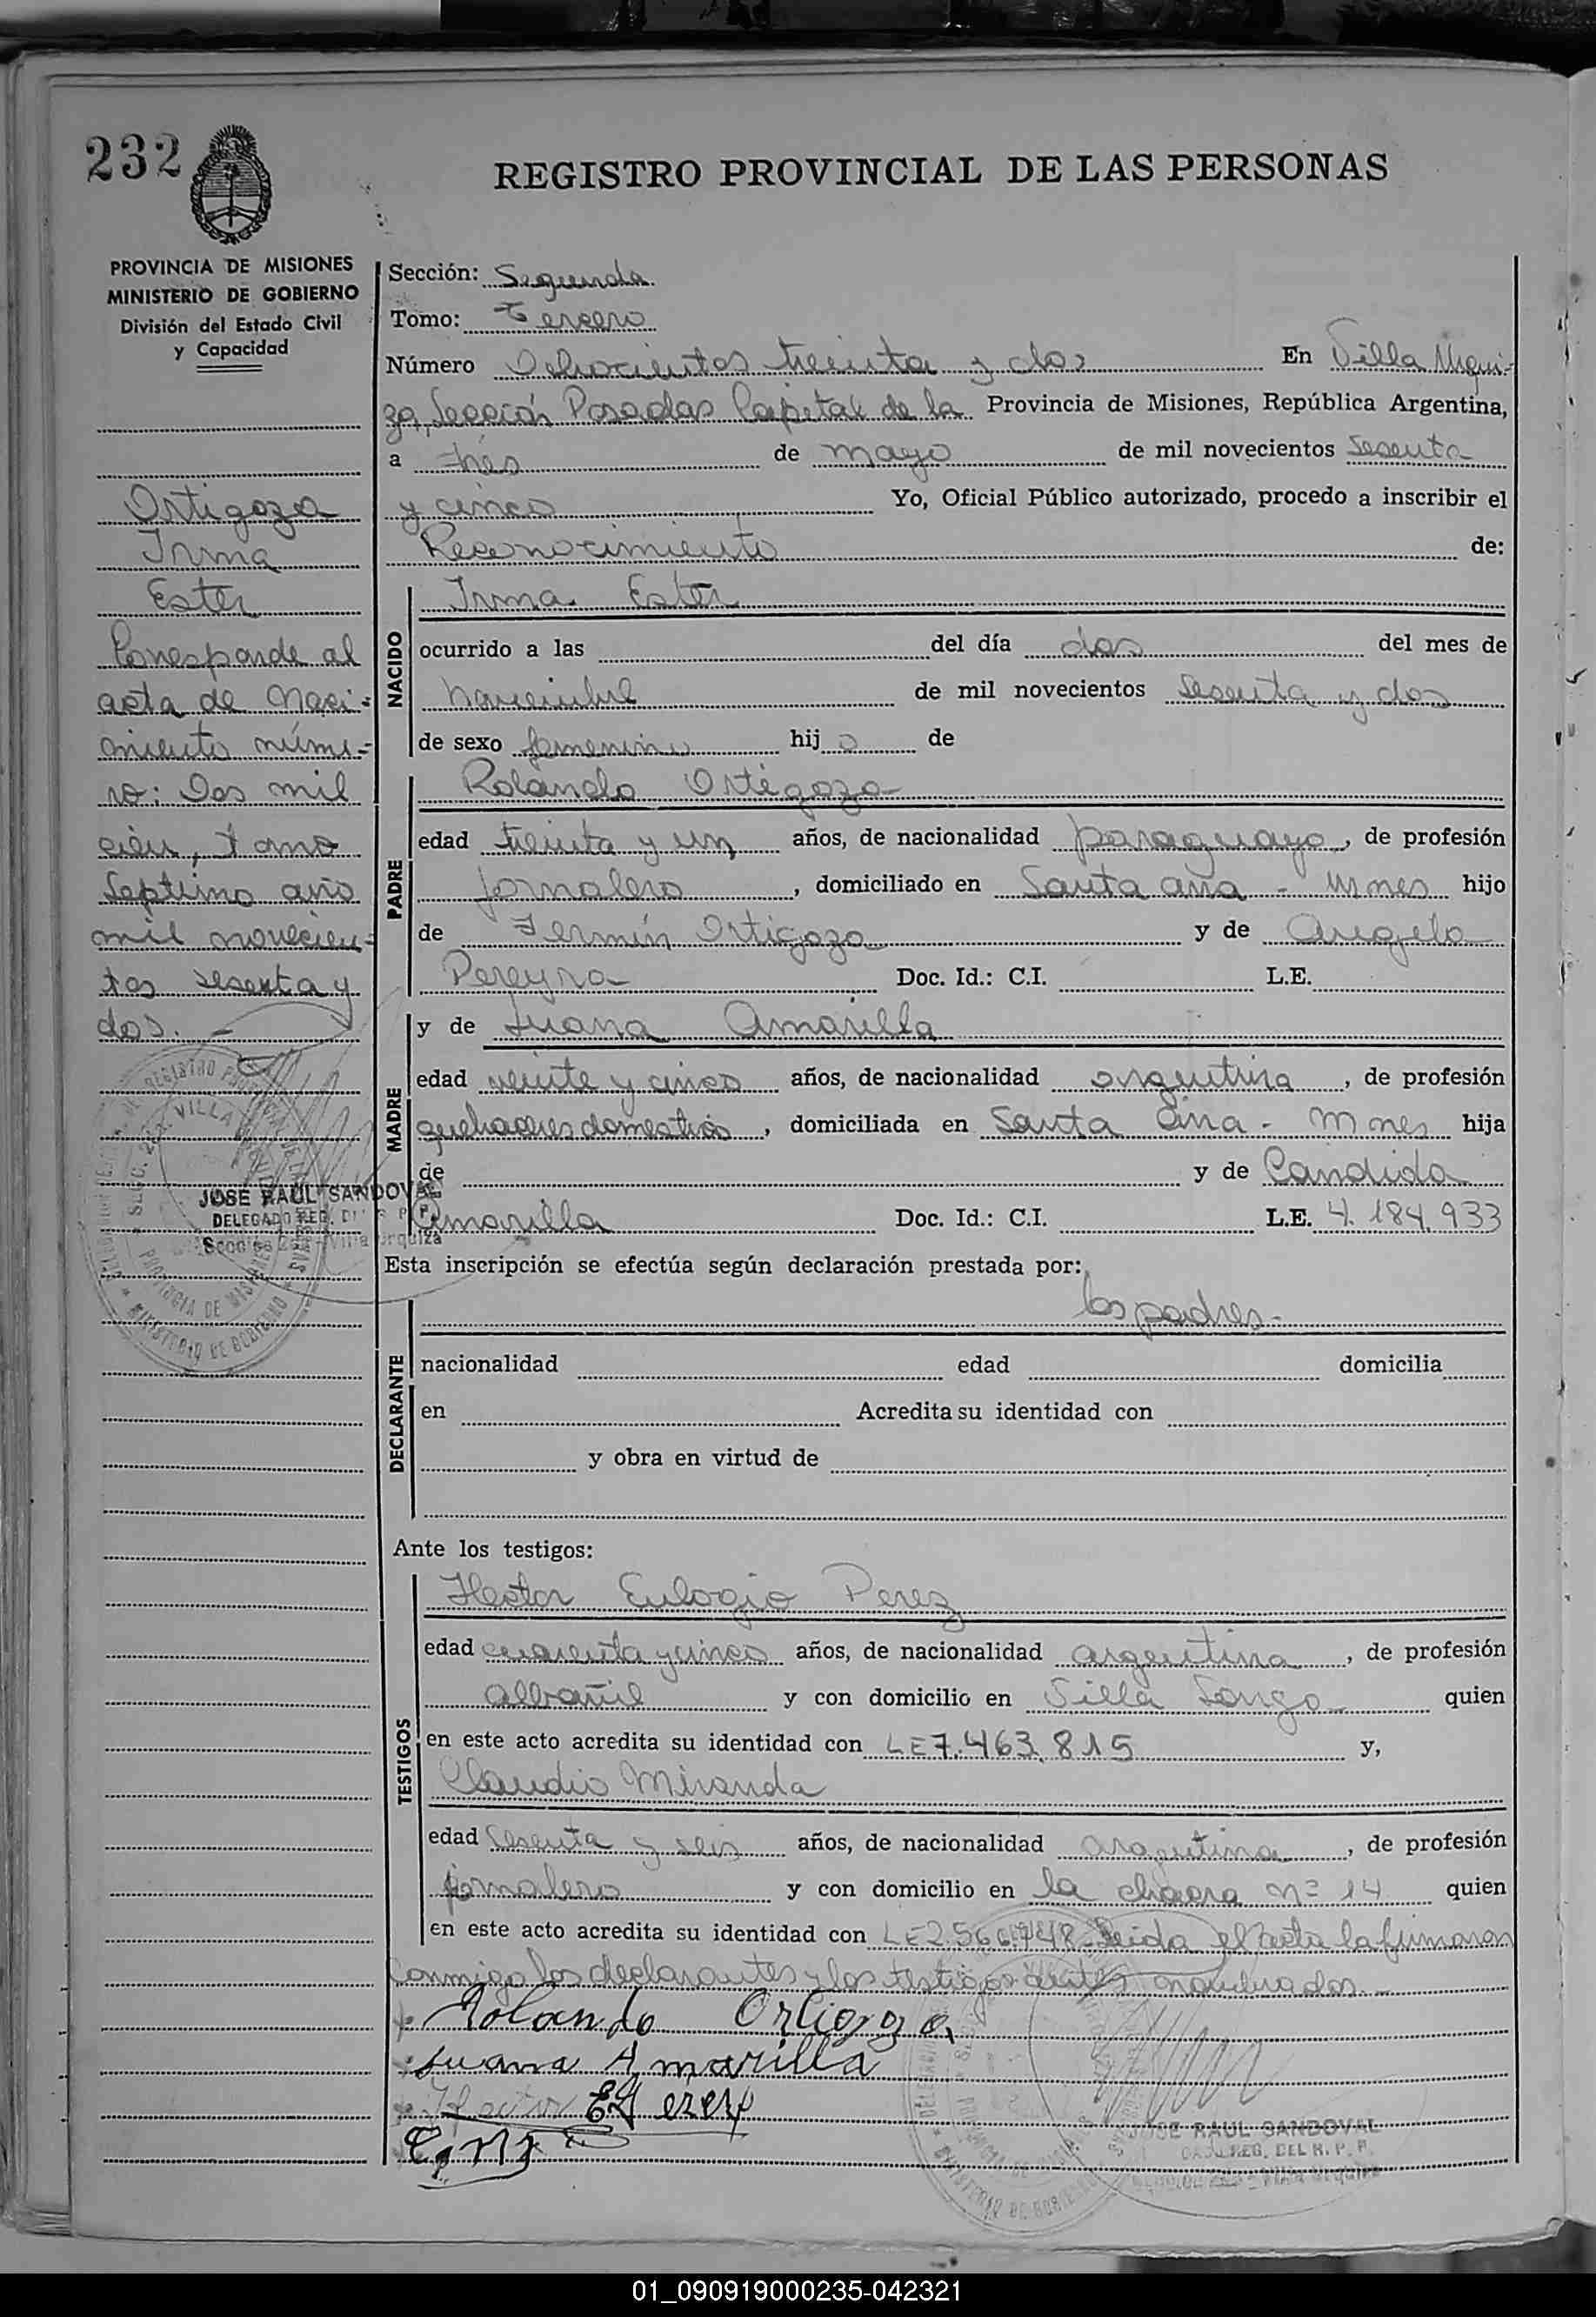 232
REGISTRO PROVINCIAL DE LAS PERSONAS
PROVINCIA DE MISIONES
MINISTERIO DE GOBIERNO
División del Estado Civil
y Capacidad
Ortigoza
Irma
Ester
Corresponde al
acta de naci-
miento núme-
ro: Dos mil
cien, tomo
Septimo año
mil novecien-
tos sesenta y
dos.
JOSE RAUL SANDOVAL
DELEGADO REG. DEL R. P. P.
Sección 2da - Villa Urquiza
Sección: Segunda
Tomo: Tercero
Número Ochocientos treinta y dos En Villa Urqui-
za, Sección Posadas Capital de la Provincia de Misiones, República Argentina,
a tres de mayo de mil novecientos sesenta
y cinco Yo, Oficial Público autorizado, procedo a inscribir el
Reconocimiento de:
NACIDO
Irma Ester
ocurrido a las del día dos del mes de
noviembre de mil novecientos sesenta y dos
de sexo femenino hij o de
PADRE
Rolando Ortigoza
edad treinta y un años, de nacionalidad paraguayo, de profesión
jornalero, domiciliado en Santa Ana - Mnes hijo
de Fermín Ortigoza y de Angela
Pereyra Doc. Id.: C.I. L.E.
MADRE
y de Juana Amarilla
edad veinte y cinco años, de nacionalidad argentina, de profesión
quehaceres domesticos, domiciliada en Santa Ana - Mnes hija
de y de Candida
Amarilla Doc. Id.: C.I. L.E. 4.184.933
Esta inscripción se efectúa según declaración prestada por:
DECLARANTE
los padres-
nacionalidad edad domicilia
en Acredita su identidad con
y obra en virtud de
Ante los testigos:
TESTIGOS
Hector Eulogio Perez
edad cuarenta y cinco años, de nacionalidad argentina, de profesión
albañil y con domicilio en Villa Longo quien
en este acto acredita su identidad con LE 7.463.815 y,
Claudio Miranda
edad sesenta y seis años, de nacionalidad argentina, de profesión
jornalero y con domicilio en la chacra nº 14 quien
en este acto acredita su identidad con Leida el acta la firmaron
conmigo los declarantes y los testigos antes nombrados.-
Rolando Ortigoza
Juana Amarilla
JOSE RAUL SANDOVAL
REG. DEL R. P. P.
01_090919000235-042321